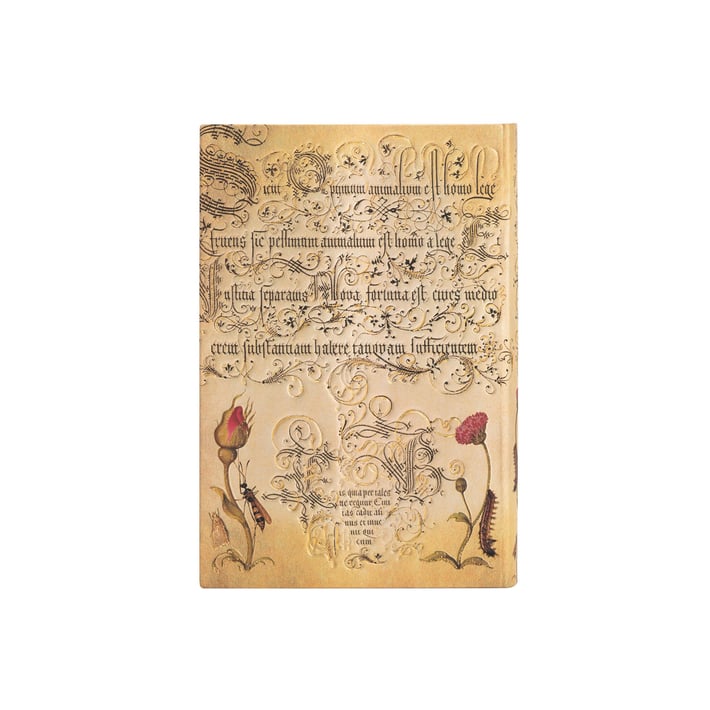 Sicut Optimum animalium est homo lege
fruens sic pessimum animalium est homo a lege Et
Justitia separatus Nova fortuna est cives medio
crem substantiam habere tanquam sufficientem
is quia per tales
ne regunt Civi
tas cadit